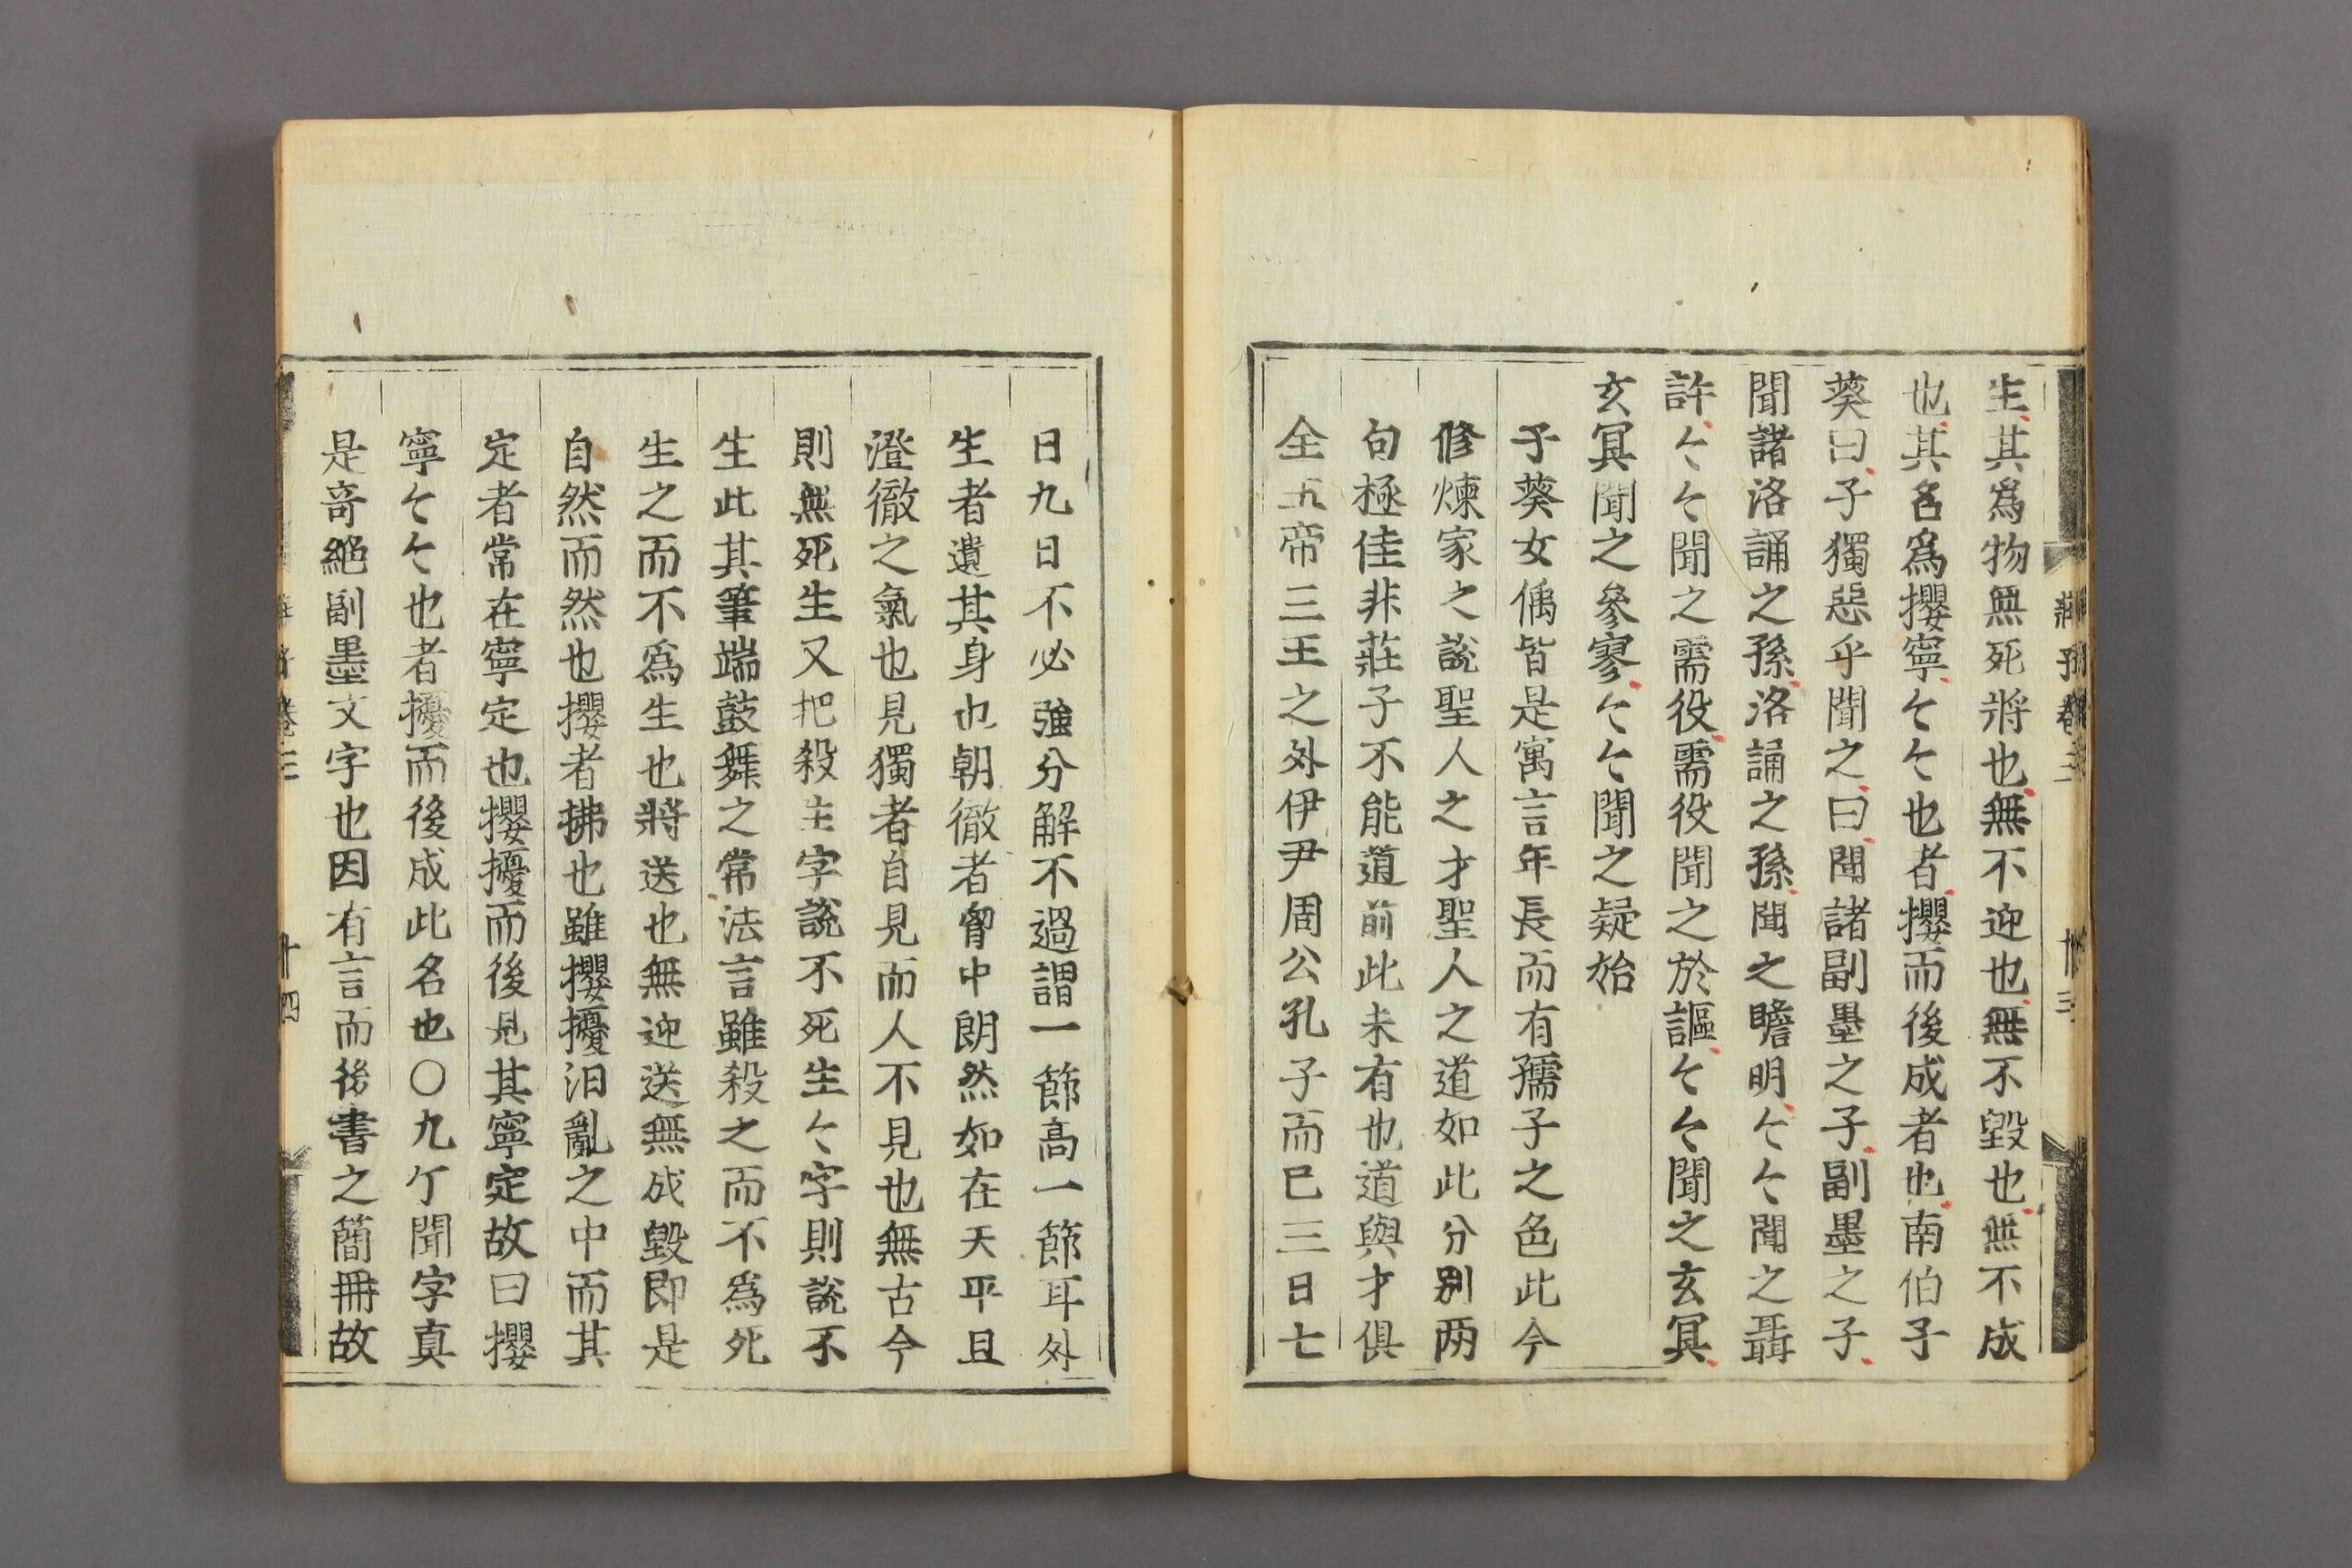 生其爲物無死將也無不迎也無不毀也無不成
也其名爲攖寧〻〻也者攖而後成者也南伯子
葵曰子獨惡乎聞之曰聞諸副墨之子副墨之子
聞諸洛誦之孫洛誦之孫聞之瞻明〻〻聞之聶
許〻〻聞之需役需役聞之於謳〻〻聞之玄冥
玄冥聞之參寥〻〻聞之疑始
子葵女偊皆是寓言年長而有孺子之色此今
修煉家之說聖人之才聖人之道如此分別两
句極佳非莊子不能道前此未有也道與才俱
全五帝三王之外伊尹周公孔子而已三日七
日九日不必強分解不過謂一節高一節耳外
生者遺其身也朝徹者胷中朗然如在天平且
澄徹之氣也見獨者自見而人不見也無古今
則無死生又把殺生字說不死生〻字則說不
生此其筆端鼓舞之常法言雖殺之而不爲死
生之而不爲生也將送也無迎送無成毀即是
自然而然也攖者拂也雖攖擾汨亂之中而其
定者常在寧定也攖擾而後見其寧定故曰攖
寧〻〻也者擾而後成此名也〇九个聞字真
是奇絕副墨文字也因有言而後書之簡冊故
莊子卷三
十四